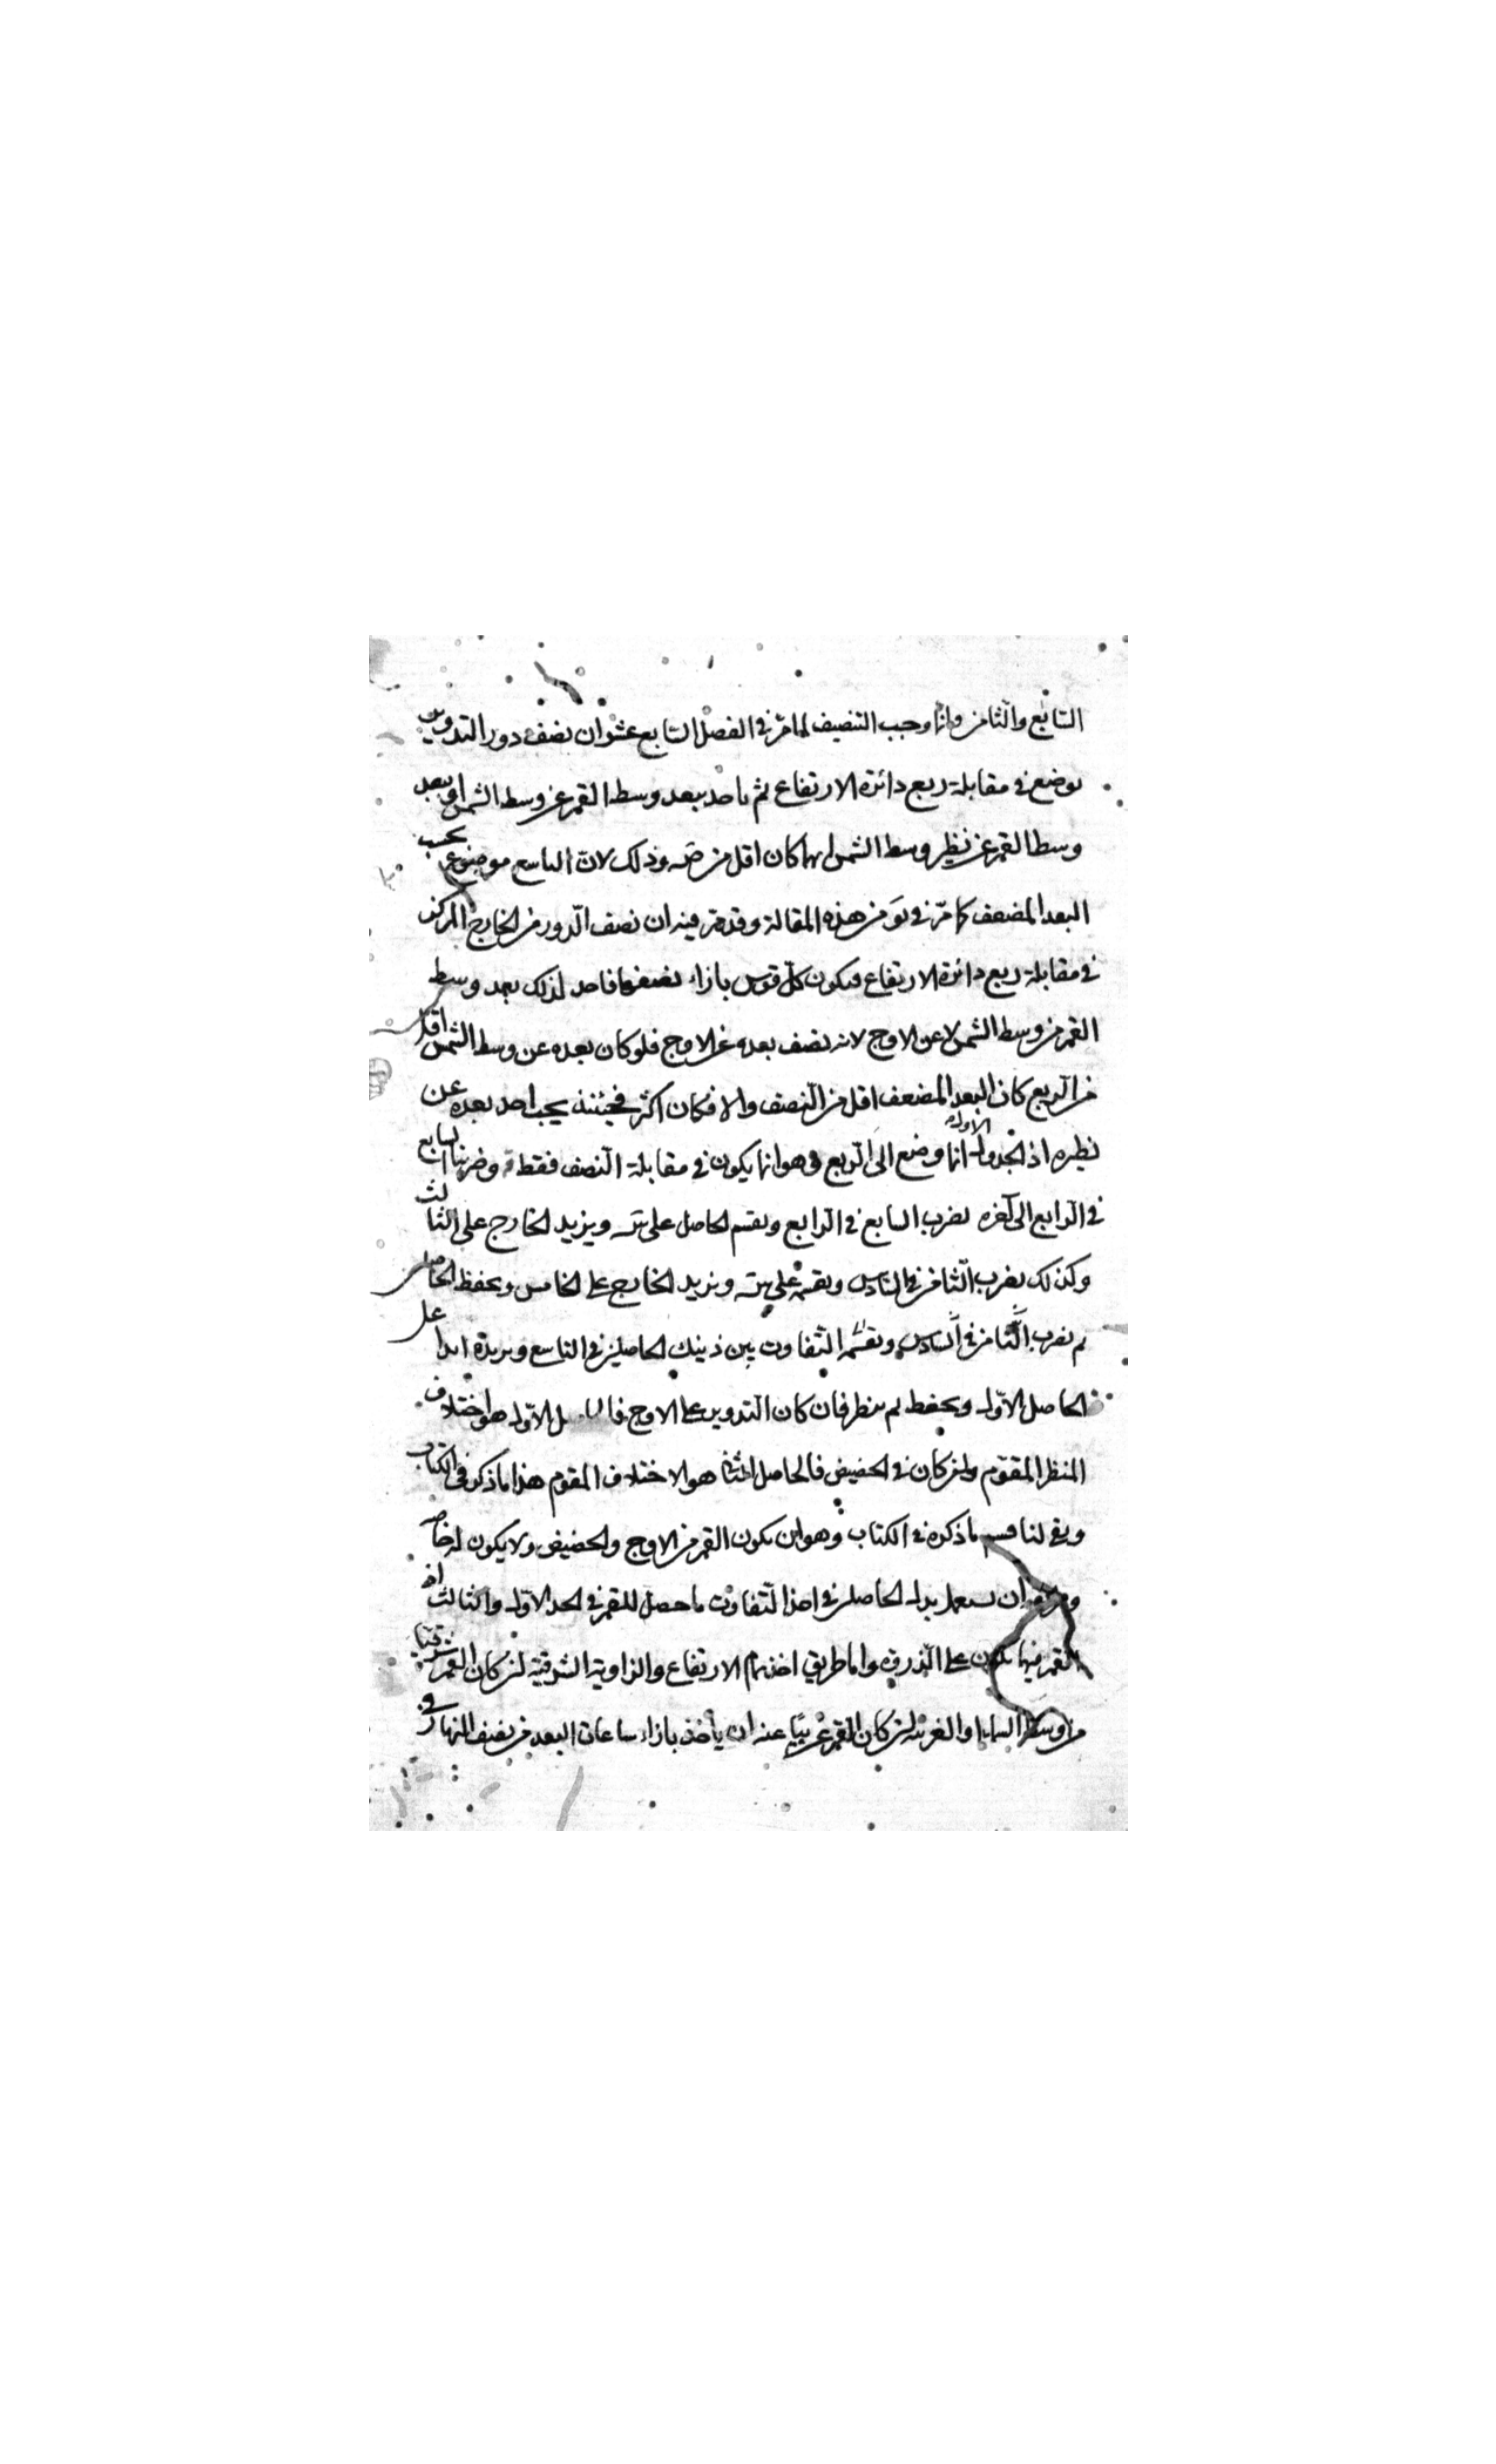 السابع والثامن وانما وجب التنصيف لما مر في الفصل السابع عشر ان نصف دور التدوير
يوضع في مقابلة ربع دائرة الارتفاع ثم ياخذ ببعد وسط القمر عن وسط الشمس او ببعد
وسط القمر عن نظير وسط الشمس ايهما كان اقل من ص وذلك لان التاسع موضوع بحسب
البعد المضعف كما مر في من هذه المقالة وقد مر فيه ان نصف الدور من الخارج المركز
في مقابلة ربع دائرة الارتفاع فيكون كل قوس بازاء نصفها فاخذ لذلك بعد وسط
القمر من وسط الشمس لا عن الاوج لانه نصف بعده عن الاوج فلو كان بعده عن وسط الشمس اقل
من الربع كان البعد المضعف اقل من النصف والا فكان اكثر فحينئذ يجب اخذ بعده عن
نظيره اذ الجدول الاول انما وضع الى الربع وهو انما يكون في مقابلة النصف فقط وضربنا السابع
في الرابع الى آخره نضرب السابع في الرابع ونقسم الحاصل على ويزيد الخارج على الثالث
وكذلك نضرب الثامن في السادس ونقسمه على ونزيد الخارج على الخامس ونحفظ الحاصل
ثم نضرب الثامن في السادس ونقسم التفاوت بين ذينك الحاصلين في التاسع ونزيده ابدا على
الحاصل الاول ونحفظه ثم ننظر فان كان التدوير على الاوج الاول هو اختلاف
المنظر المقوم وان كان في الحضيض فالحاصل الثاني هو الاختلاف المقوم هذا ما ذكر في الكتاب
وبقي لنا قسم ما ذكره في الكتاب وهو ان يكون القمر من الاوج والحضيض ولا يكون له
ان نستعمل بدل الحاصلين في اخذ التفاوت ما حصل للقمر في الحد الاول والثالث اذ
القمر فيهما يكون على الذروة واما طريق اخذ تمام الارتفاع والزاوية الشرقية ان كان القمر شرقيا
من وسط السماء او الغربية ان كان القمر غربيا عنه ان يأخذ بازاء ساعات البعد من نصف النهار في